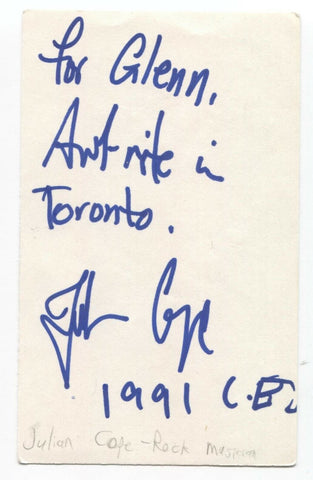 For Glenn,
Awt nite in
Toronto.
Julian Cope
1991 C.E.
Julian Cope - Rock musician